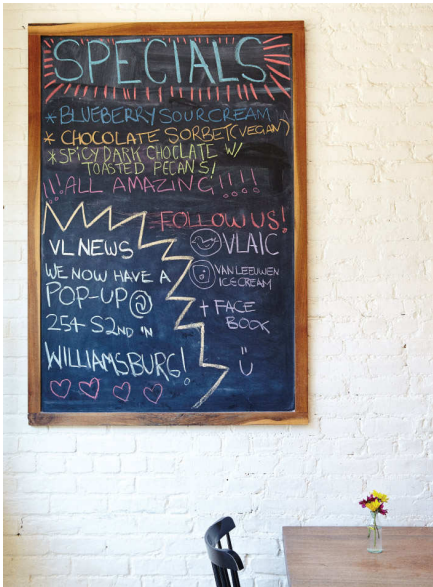 SPECIALS
* BLUEBERRY SOUR CREAM
* CHOCOLATE SORBET (VEGAN)
* SPICY DARK CHOCLATE W/
TOASTED PECANS!
!!!ALL AMAZING!!!!
VL NEWS
WE NOW HAVE A
POP-UP @
254 S2ND IN
WILLIAMSBURG!
FOLLOW US!
VLAIC
VAN LEEUWEN
ICE CREAM
+ FACE
BOOK